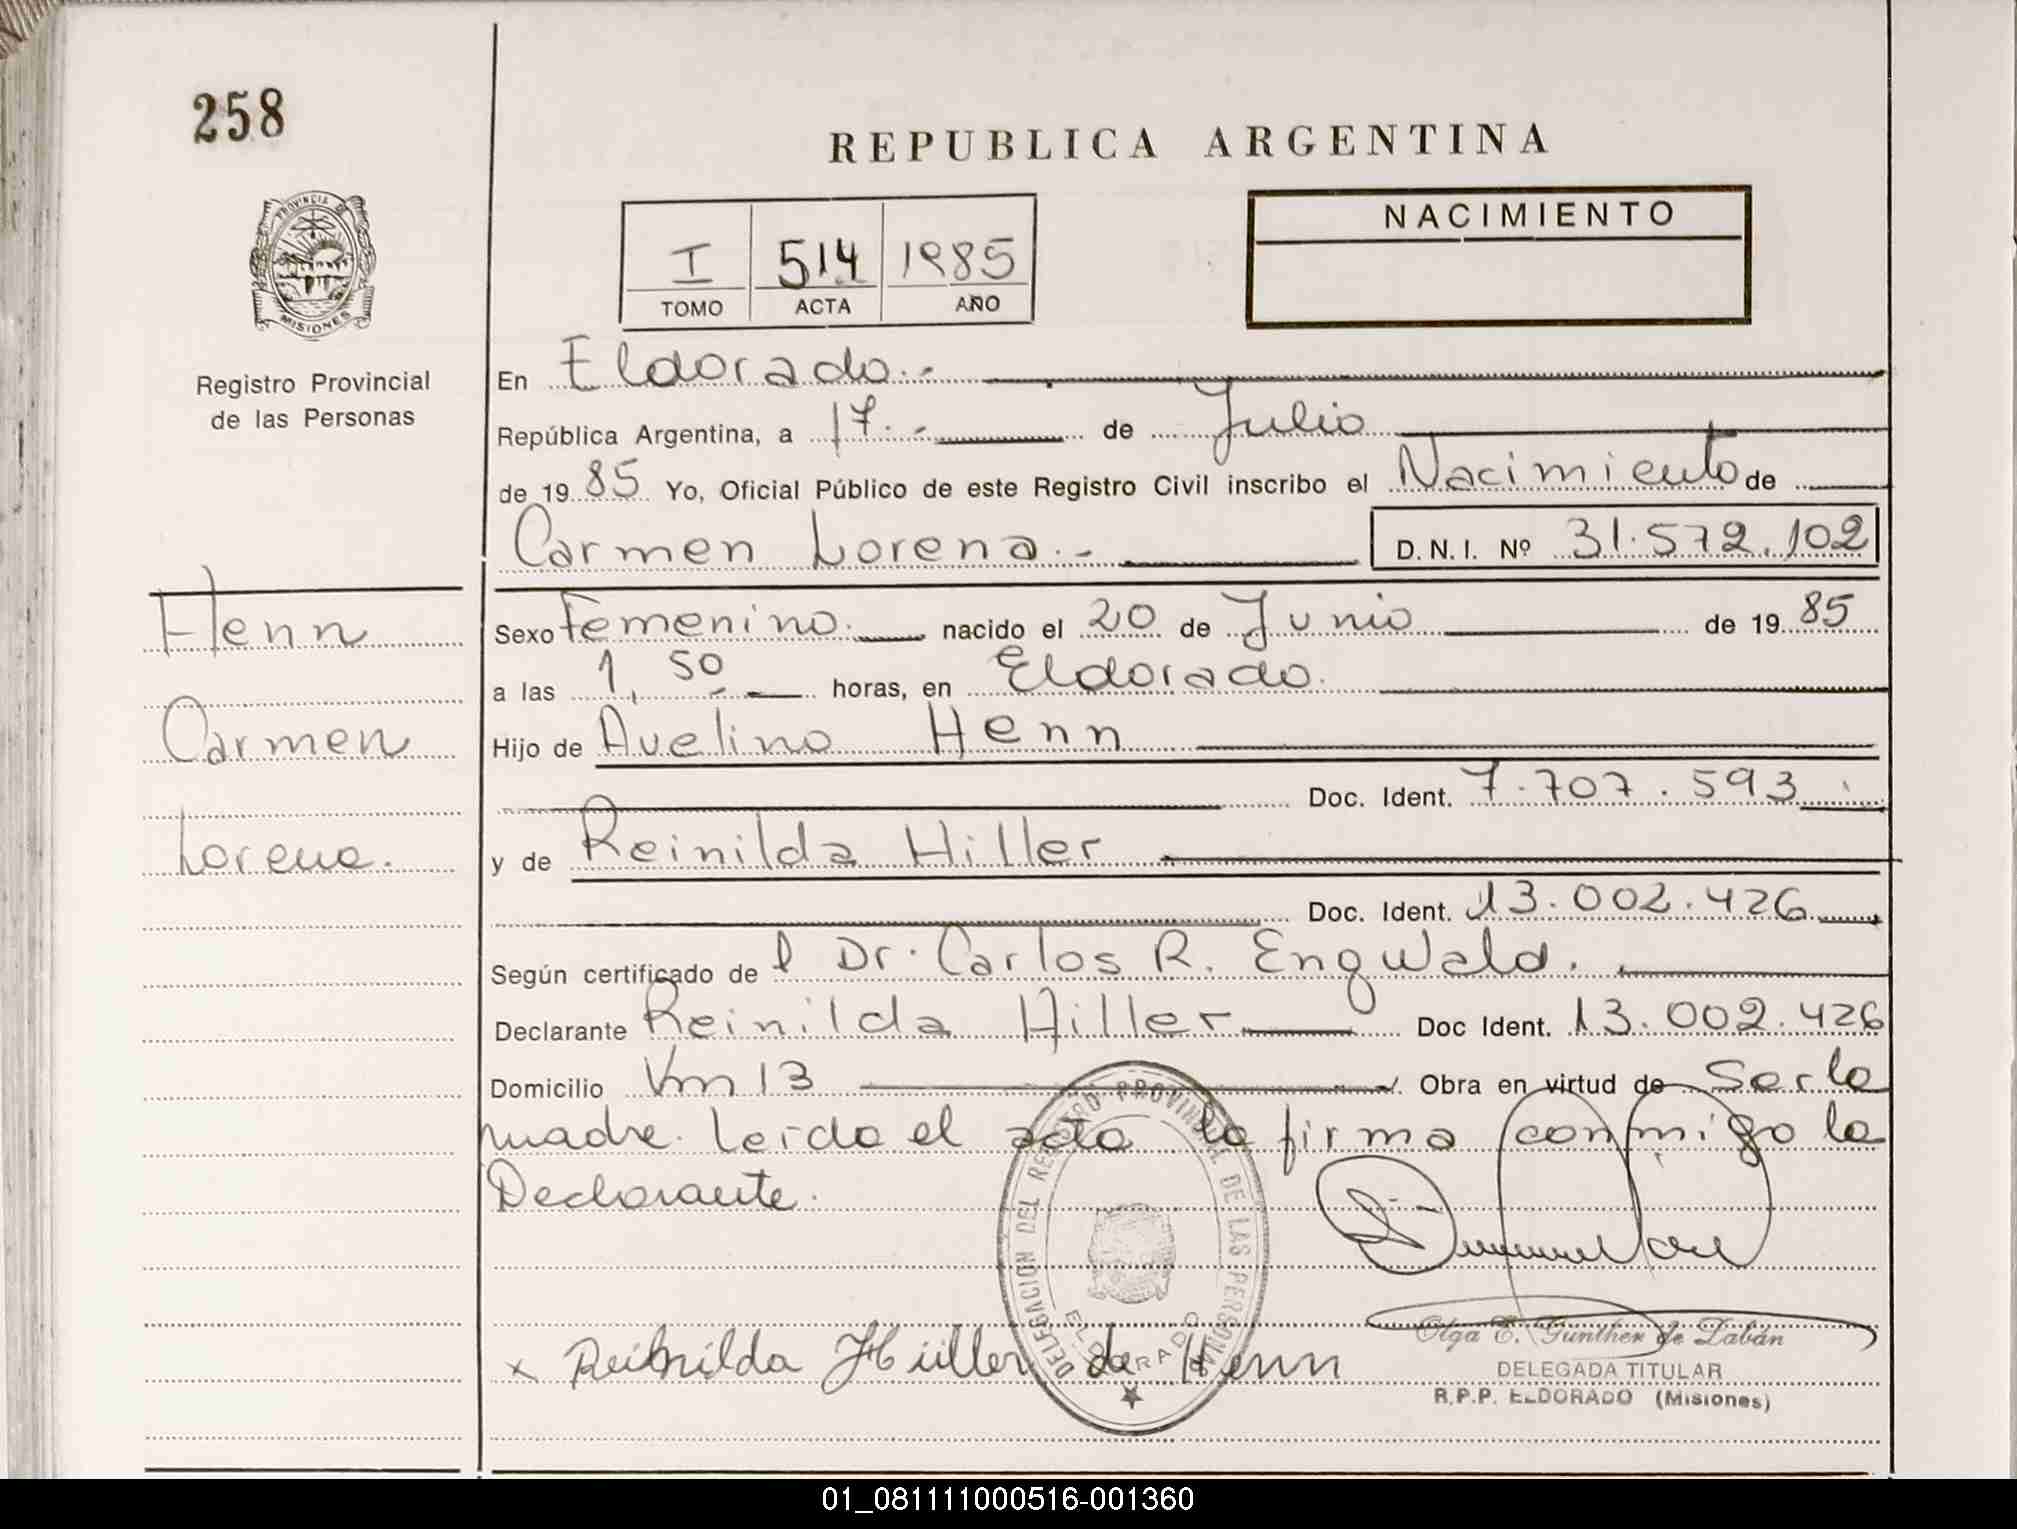 258
REPUBLICA ARGENTINA
PROVINCIA DE
MISIONES
Registro Provincial
de las Personas
I 514 1985
TOMO ACTA AÑO
NACIMIENTO
En Eldorado.-
República Argentina, a 17.- de Julio
de 1985 Yo, Oficial Público de este Registro Civil inscribo el Nacimiento de
Carmen Lorena.- D.N.I. Nº 31.572.102
Henn
Carmen
Lorena.
Sexo Femenino. nacido el 20 de Junio de 1985
a las 1,50 horas, en Eldorado.
Hijo de Avelino Henn
Doc. Ident. 7.707.593
y de Reinilda Hiller
Doc. Ident. 13.002.426
Según certificado del Dr. Carlos R. Engwald.
Declarante Reinilda Hiller Doc Ident. 13.002.426
Domicilio Km 13 Obra en virtud de Ser la
madre. Leída el acta la firma conmigo la
Declarante.
DELEGACION DEL REGISTRO PROVINCIAL DE LAS PERSONAS
ELDORADO
x Reinilda Hüller de Henn
Olga E. Günther de Zabán
DELEGADA TITULAR
R.P.P. ELDORADO (Misiones)
01_081111000516-001360